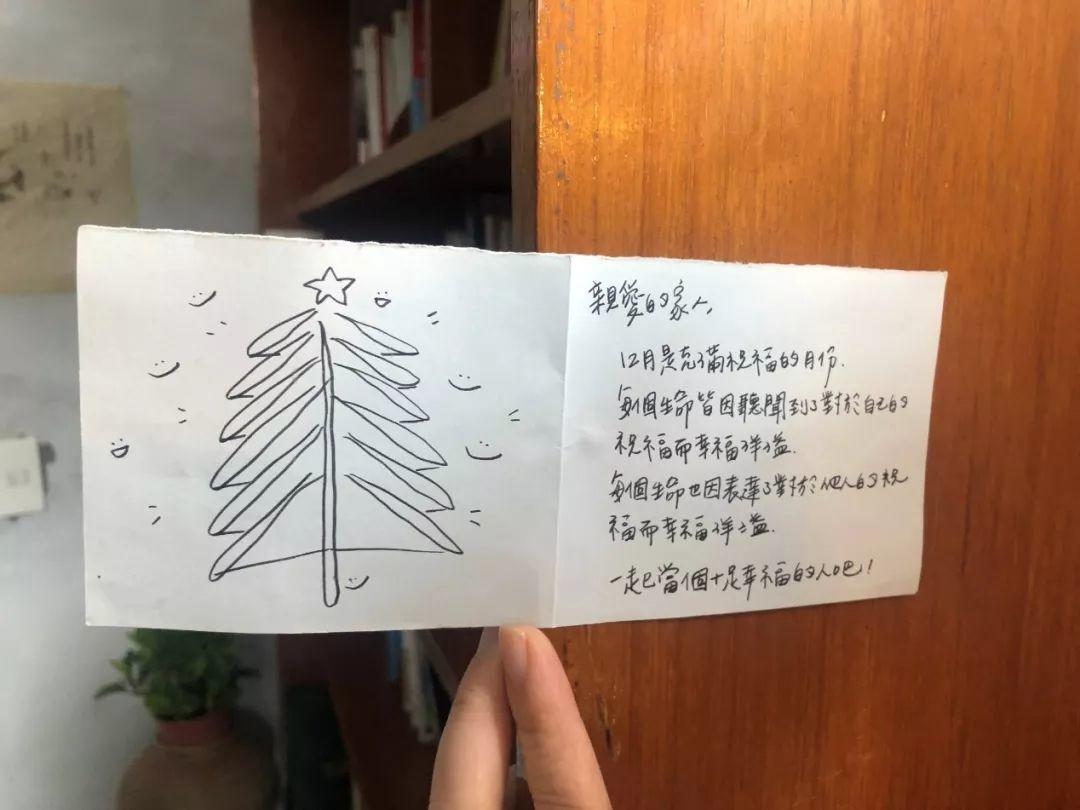 親愛的家人,
12月是充滿祝福的月份.
每個生命皆因聽聞到了對於自己的
祝福而幸福洋溢.
每個生命也因表達了對於他人的祝
福而幸福洋溢.
一起當個十足幸福的人吧!